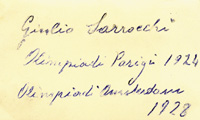 Giulio Sarrocchi
Olimpiadi Parigi 1924
Olimpiadi Amsterdam
1928